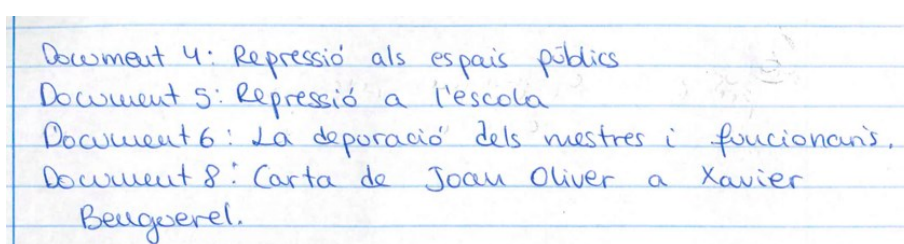 Document 4: Repressió als espais públics
Document 5: Repressió a l'escola
Document 6: La depuració dels mestres i funcionaris.
Document 8: Carta de Joan Oliver a Xavier
Benguerel.